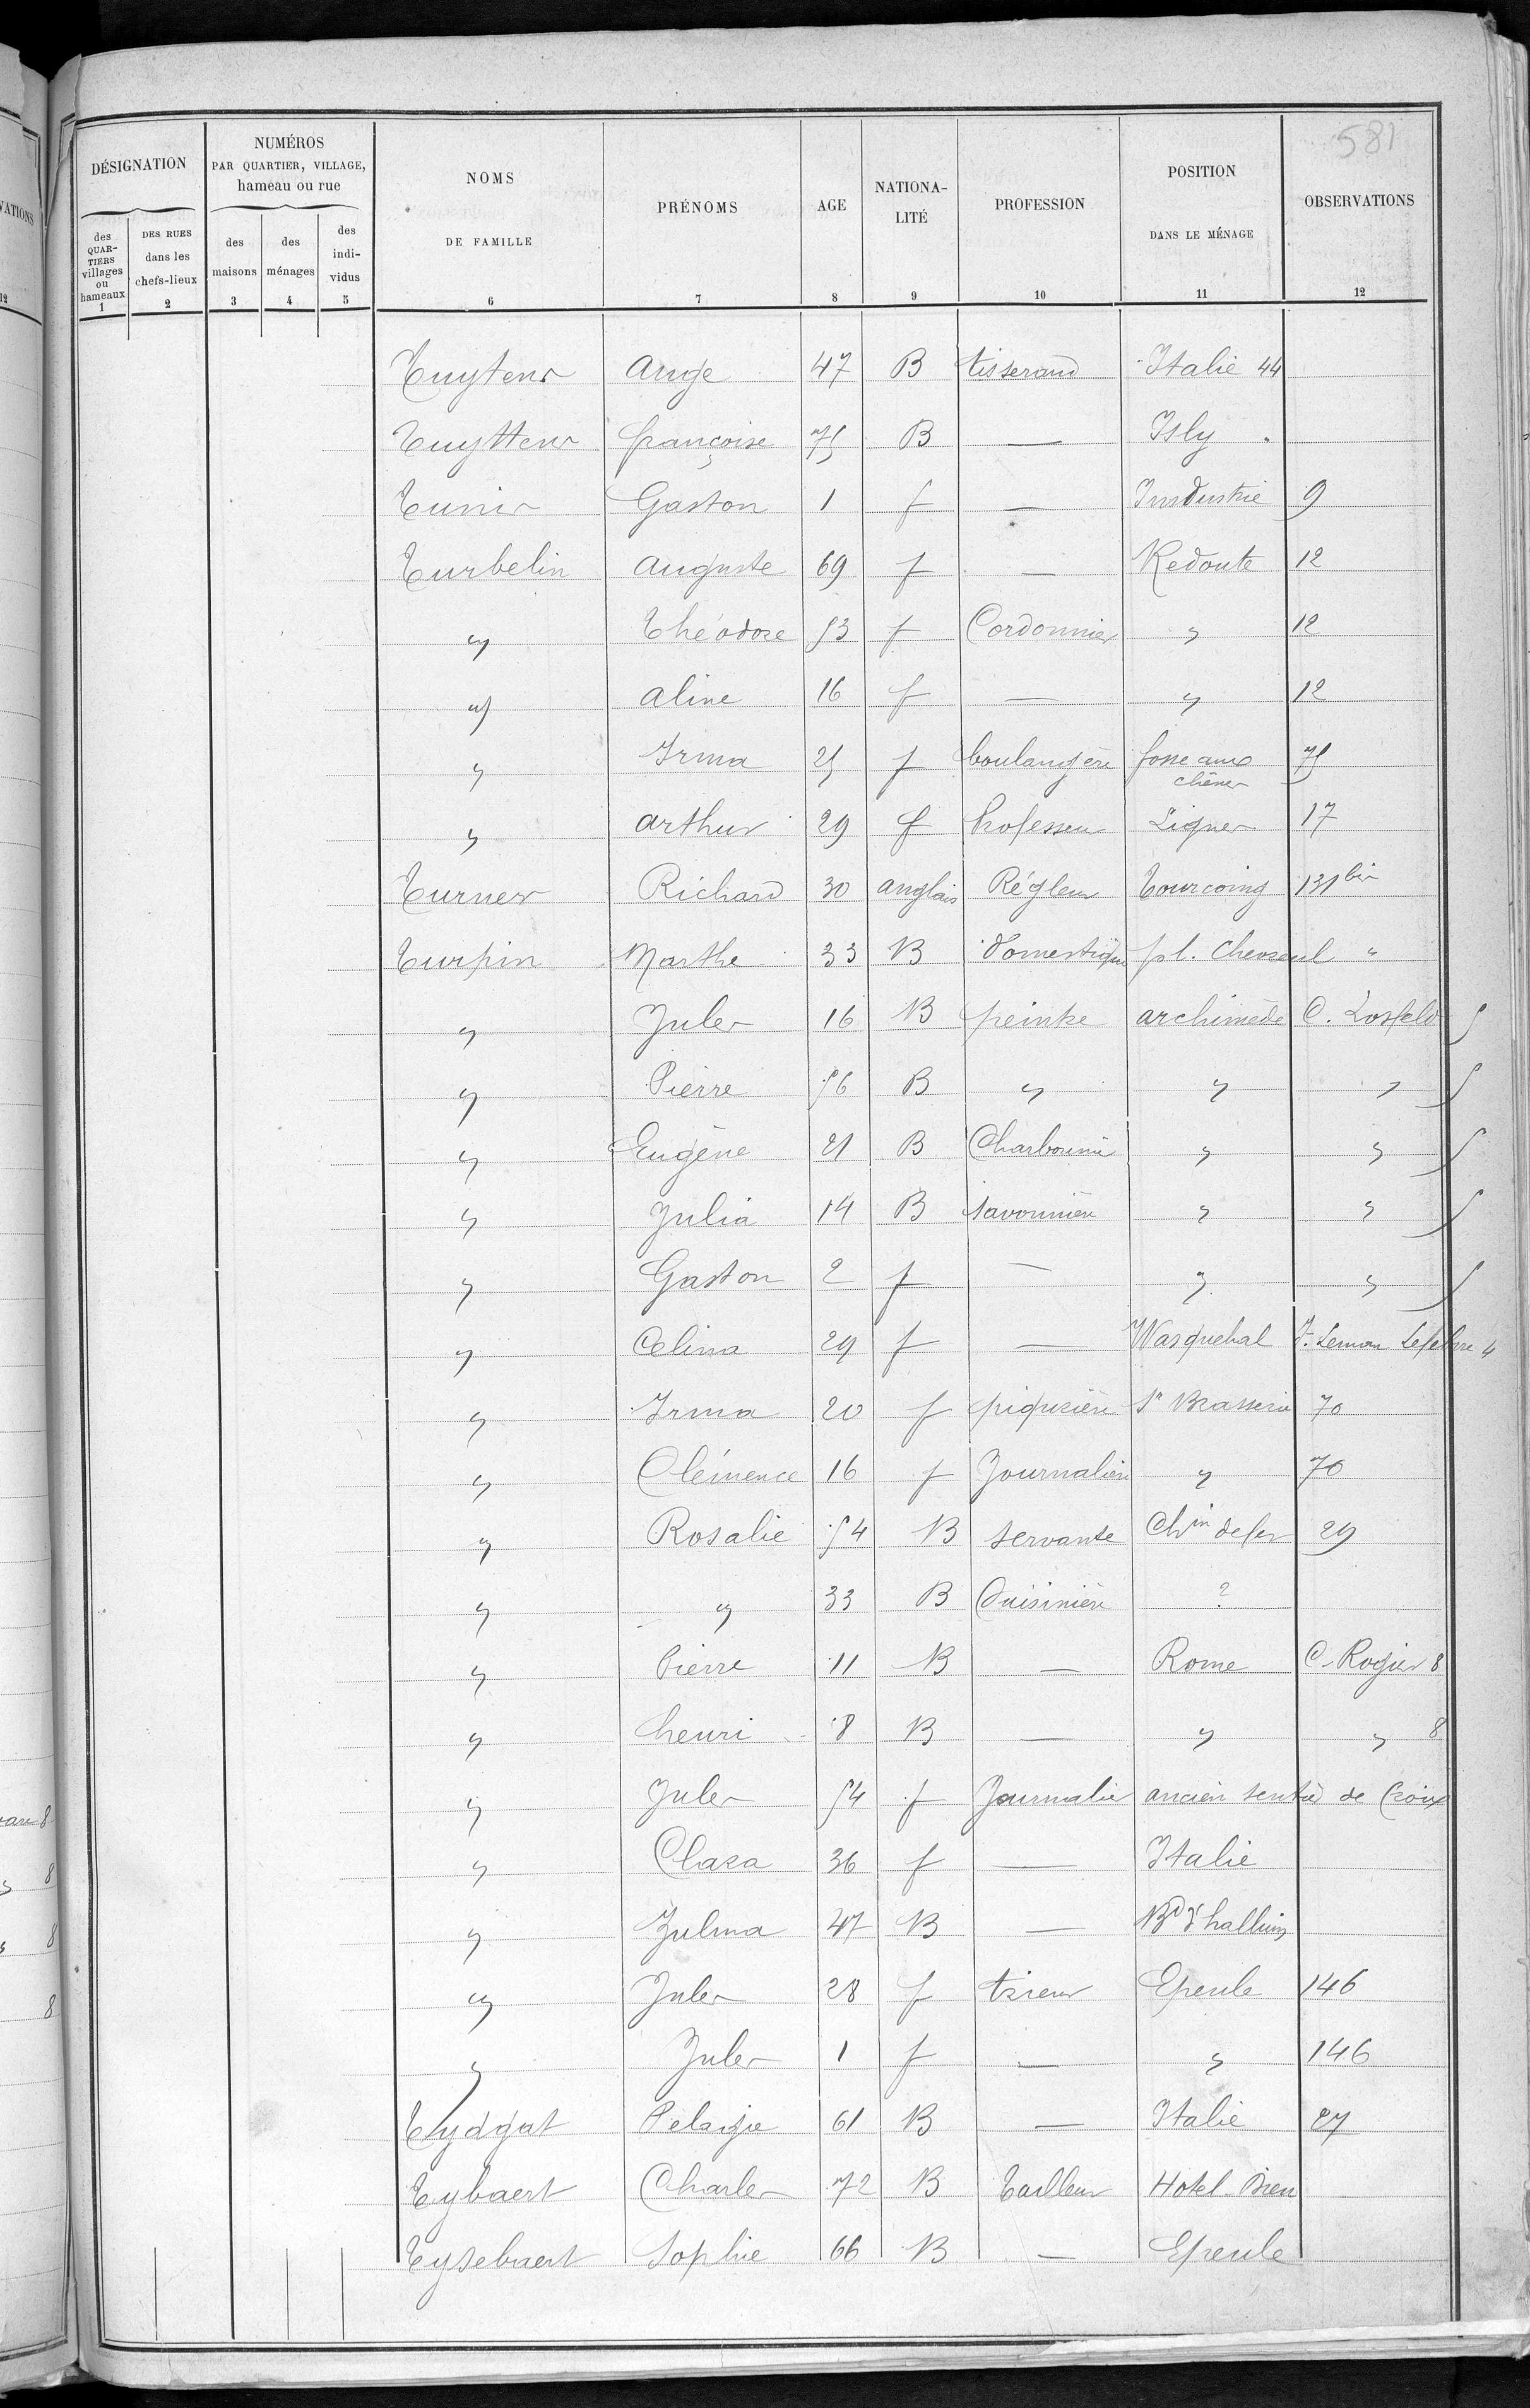 581
DÉSIGNATION NUMÉROS PAR QUARTIER, VILLAGE, hameau ou rue NOMS DE FAMILLE PRÉNOMS AGE NATIONA-LITÉ PROFESSION POSITION DANS LE MÉNAGE OBSERVATIONS
des QUAR-TIERS villages ou hameaux DES RUES dans les chefs-lieux des maisons des ménages des indi-vidus
1 2 3 4 5 6 7 8 9 10 11 12
Tuytens Ange 47 B tisserand Italie 44
Tuyttens françoise 75 B — Isly "
Tunis Gaston 1 f — Industrie 9
Turbelin Auguste 69 f — Redoute 12
" Théodore 53 f Cordonnier " 12
" Aline 16 f — " 12
" Irma 25 f boulangère fosse aux chênes 75
" Arthur 29 f Professeur Ligner 17
Turner Richard 30 anglais Régleur Tourcoing 131 bis
Turpin Marthe 33 B domestique pl. Chevreul "
" Jules 16 B peintre archimède C. Losfeld 5
" Pierre 56 B " " " 5
" Eugène 21 B Charbonnier " " 5
" Julia 14 B savonnière " " 5
" Gaston 2 f — " " 5
" Celina 29 f — Wasquehal f. Leman Lefebvre 4
" Irma 20 f piqurière Sr Brasserie 70
" Clémence 16 f Journalière " 70
" Rosalie 54 B servante Chin de fer 29
" " 33 B Cuisinière ?
" Pierre 11 B — Rome C. Rogier 8
" henri 8 B — " " 8
" Jules 54 f Journalier ancien sentier de Croix
" Clara 36 f — Italie
" Zulma 47 B — Bd d'halluin
" Jules 28 f trieur Epeule 146
" Jules 1 f — " 146
Tydgat Pelagie 61 B — Italie 27
Tybaert Charles 72 B Tailleur Hotel-Dieu
Tysebaert Sophie 66 B — Epeule